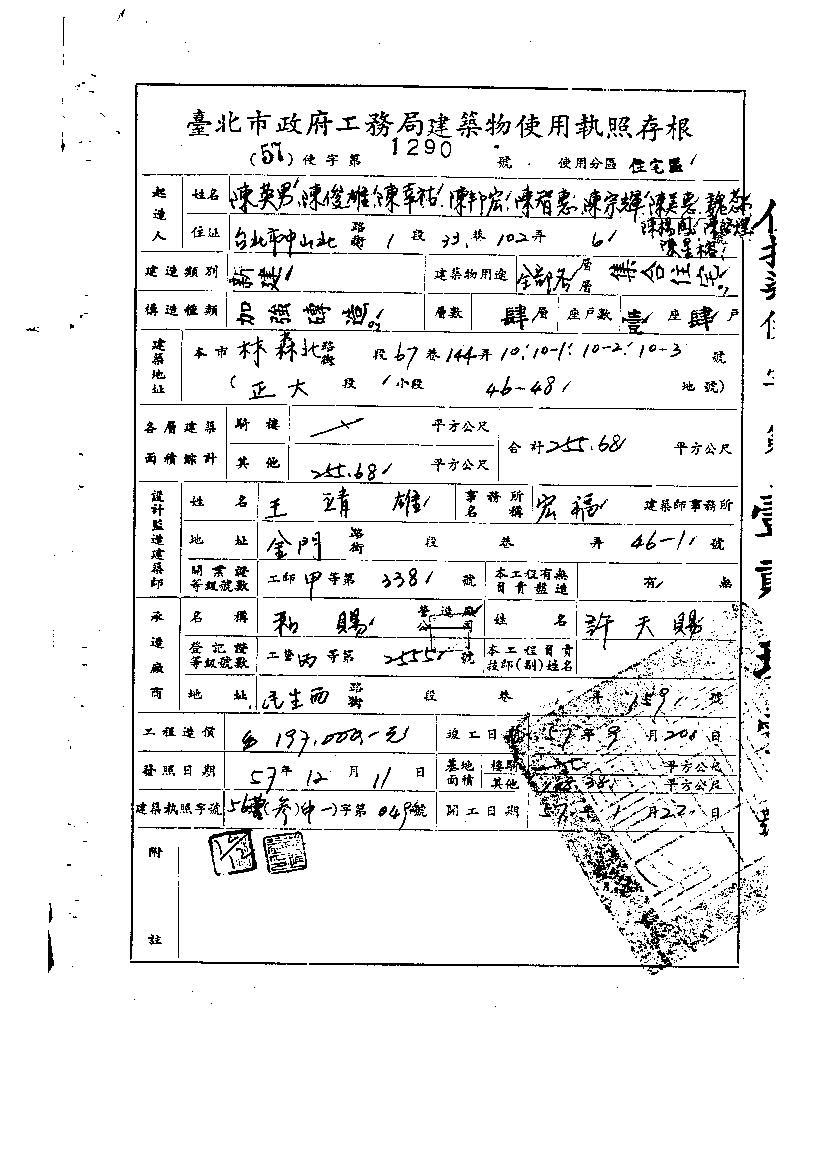 臺北市政府工務局建築物使用執照存根
(57)使字第 1290 號 使用分區 住宅區
起造人 姓名 陳英男 陳俊雄 陳幸祐 陳邦宏 陳智惠 陳宗輝 陳美惠
住址 台北市中山北路街 1 段 33 巷 102 弄 6
建造類別 新建 建築物用途 全部各層層 集合住宅
構造種類 加強磚造 層數 肆層 座戶數 壹座肆戶
建築地址 本市 林森北路街 段 67 巷 144 弄 10 10-1 10-2 10-3 號
(正大段 1 小段 46-48 地號)
各層建築面積綜計 騎樓 平方公尺 合計 255.68 平方公尺
其他 255.68 平方公尺
設計監造建築師 姓名 王靖雄 事務所名稱 宏福 建築師事務所
地址 金門路街 段 巷 弄 46-1 號
開業證等級號數 工師甲等第 338 號 本工程有無負責監造 有 無
承造廠商 名稱 和賜 營造廠公司 姓名 許天賜
登記證等級號數 工營丙等第 2555 號 本工程負責技師(副)姓名
地址 民生西路街 段 巷 弄 159 號
工程造價 197,000.-元 竣工日期 57年9月20日
發照日期 57年12月11日 基地面積 騎樓 平方公尺
其他 平方公尺
建築執照字號 56營(參)(中一)字第049號 開工日期 57年1月22日
附註